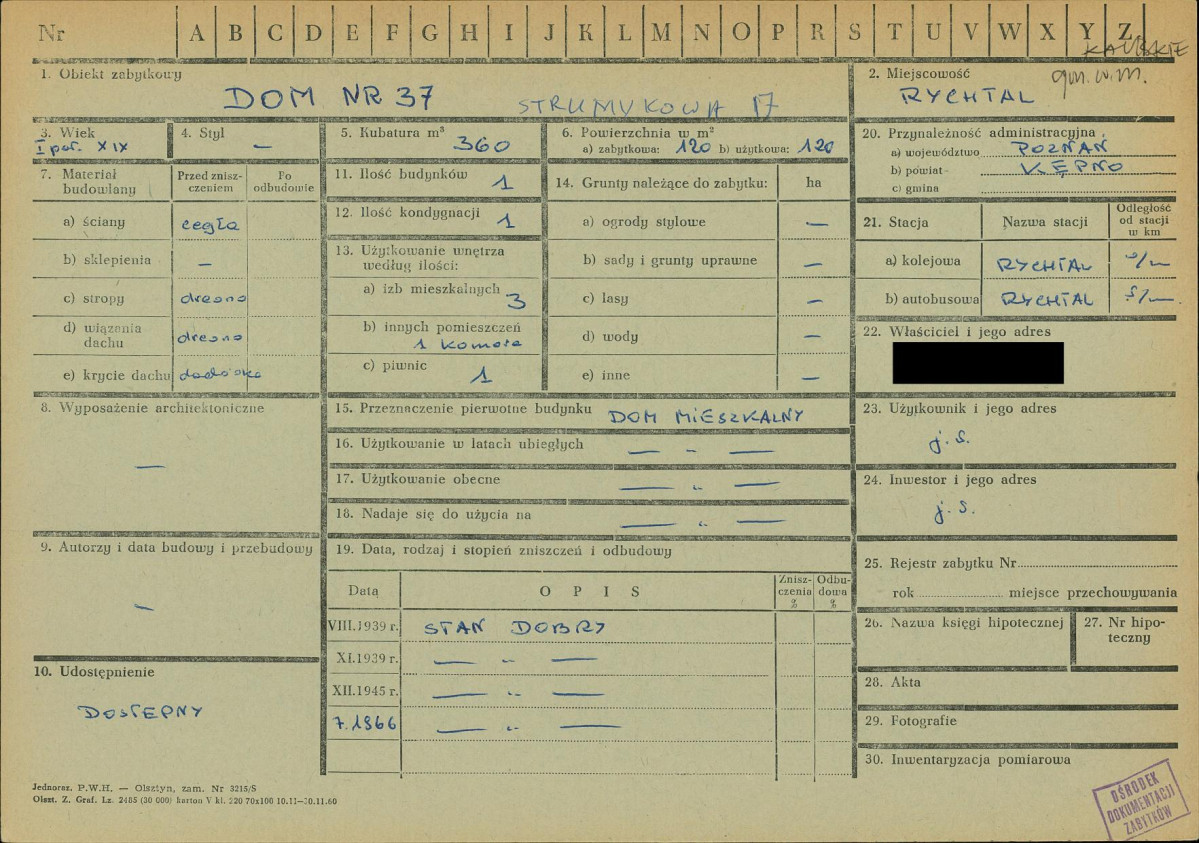 Nr A B C D E F G H I J K L M N O P R S T U V W X Y Z
KALISKIE
gm. w.m.
1. Obiekt zabytkowy
DOM NR 37 STRUMYKOWA 17
2. Miejscowość
RYCHTAL
3. Wiek
I poł. XIX
4. Styl
—
5. Kubatura m³
360
6. Powierzchnia w m²
a) zabytkowa: 120 b) użytkowa: 120
20. Przynależność administracyjna
a) województwo POZNAŃ
b) powiat KĘPNO
c) gmina
7. Materiał budowlany
Przed zniszczeniem
Po odbudowie
a) ściany cegła
b) sklepienia —
c) stropy drewno
d) wiązania dachu drewno
e) krycie dachu dachówka
11. Ilość budynków
1
12. Ilość kondygnacji
1
13. Użytkowanie wnętrza według ilości:
a) izb mieszkalnych 3
b) innych pomieszczeń
1 komora
c) piwnic 1
14. Grunty należące do zabytku: ha
a) ogrody stylowe —
b) sady i grunty uprawne —
c) lasy —
d) wody —
e) inne —
21. Stacja Nazwa stacji Odległość od stacji w km
a) kolejowa RYCHTAL
b) autobusowa RYCHTAL
22. Właściciel i jego adres
8. Wyposażenie architektoniczne
—
15. Przeznaczenie pierwotne budynku DOM MIESZKALNY
16. Użytkowanie w latach ubiegłych — „ —
17. Użytkowanie obecne — „ —
18. Nadaje się do użycia na — „ —
23. Użytkownik i jego adres
j. s.
24. Inwestor i jego adres
j. s.
9. Autorzy i data budowy i przebudowy
—
19. Data, rodzaj i stopień zniszczeń i odbudowy
Data O P I S Zniszczenia % Odbudowa %
VIII.1939 r. STAN DOBRY
XI.1939 r. — „ —
XII.1945 r. — „ —
7.1966 — „ —
25. Rejestr zabytku Nr
rok miejsce przechowywania
26. Nazwa księgi hipotecznej
27. Nr hipoteczny
10. Udostępnienie
DOSTĘPNY
28. Akta
29. Fotografie
30. Inwentaryzacja pomiarowa
Jednoraz. P.W.H. — Olsztyn, zam. Nr 3215/S
Olszt. Z. Graf. Lz. 2485 (30 000) karton V kl. 220 70x100 10.11-30.11.60
OŚRODEK
DOKUMENTACJI
ZABYTKÓW